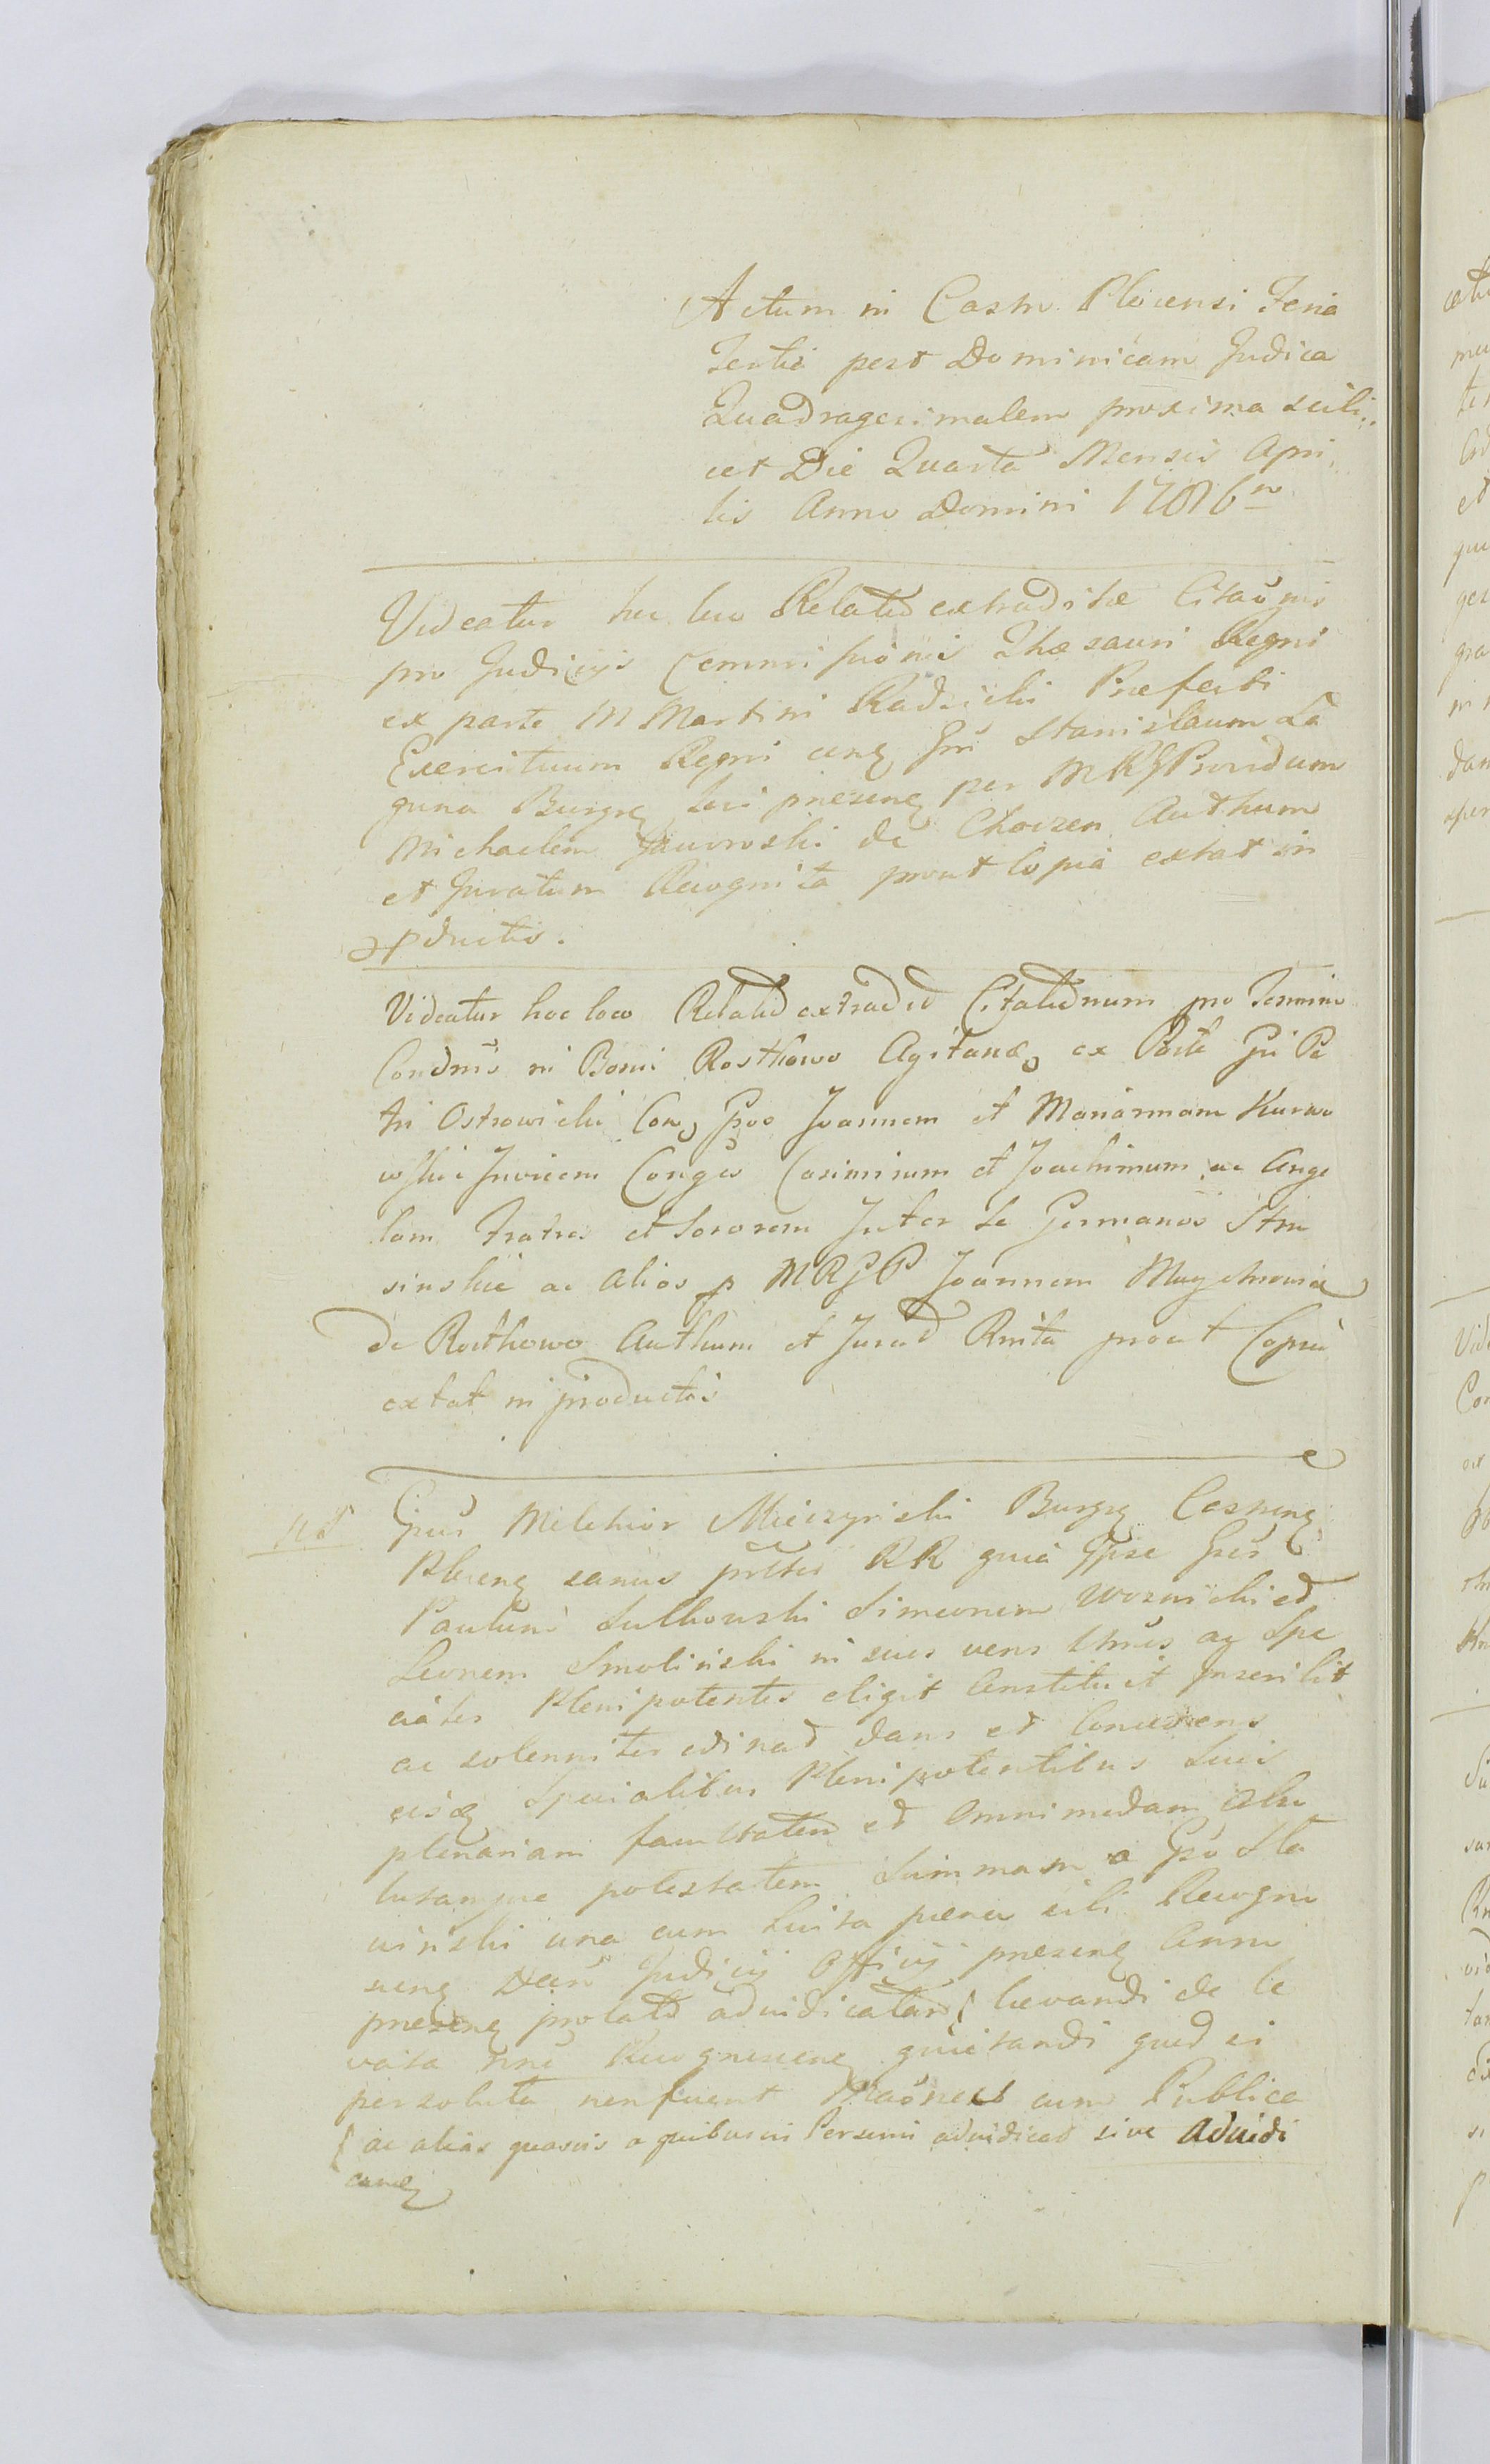 Actum in Castro Plocensi Feria
Tertia post Dominicam Judica
Quadragesimalem proxima scili..
cet Die Quarta Mensis Apri,
lis Anno Domini 1786to
Videatur hic loco Relatio extraditæ Citaõnis
pro Judicijs Commissionis Thesauri Regni
ex parte M Martini Radzicki Præfecti
Exercituum Regni Stanislaum La
guna Burgg præsenę per MRGProvidum
Michaelem Jaworski de Choczen Authum
et Juratum Recognita prout Copia extat in
pductis.
Videatur hoc loco Relatio extradio Citationum pro Termino
Condnis in Bonis Rosthowo ex Parte Gsi Pe
tri Ostrowicki Gsos Joannem et Mariannam Kurwo
wskie Invicem Conges Casimirum et Joachimum ac Ange
lam Fratres et Sororem Inter se Germanos Stru
sinskie ac alios p MRGP Joannem
de Rosthowo Authum et Jurad Rnita prout Copia
extat in productis
Gsus Melchior Mieczynski Burgg Castrenę
Plocenę sanus RR quia Ipse Gsos
Paulum Sulkowski Simeonem Woznicki ed
Leonem Smolinski in suos veros ac Spe
ciales Plenipotentes eligit Constituit Inscribit
ac solenniter ordinad dans et Concedens
eisdę Specialibus Plenipotentibus Suis
plenariam facultatem ed omnimodam abso
lutamque potestatem Summam a Gso Sta
winski una cum Luita pæna sibi Recogno
scenę Judicij Officij præsenę Anno
præsenę prolatd adiudicatam levandi de le
vata Recognoscenę quietandi quod si
persoluta non fuerit cum Publica
ac alias quasvis a quibusvis Personis adiudicat sive Adiudi
canę